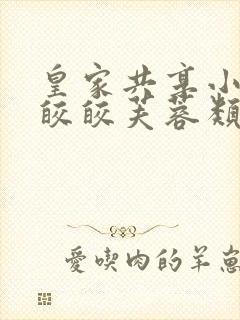 皇家共享小
皎皎芙蓉類
愛喫肉的羊崽